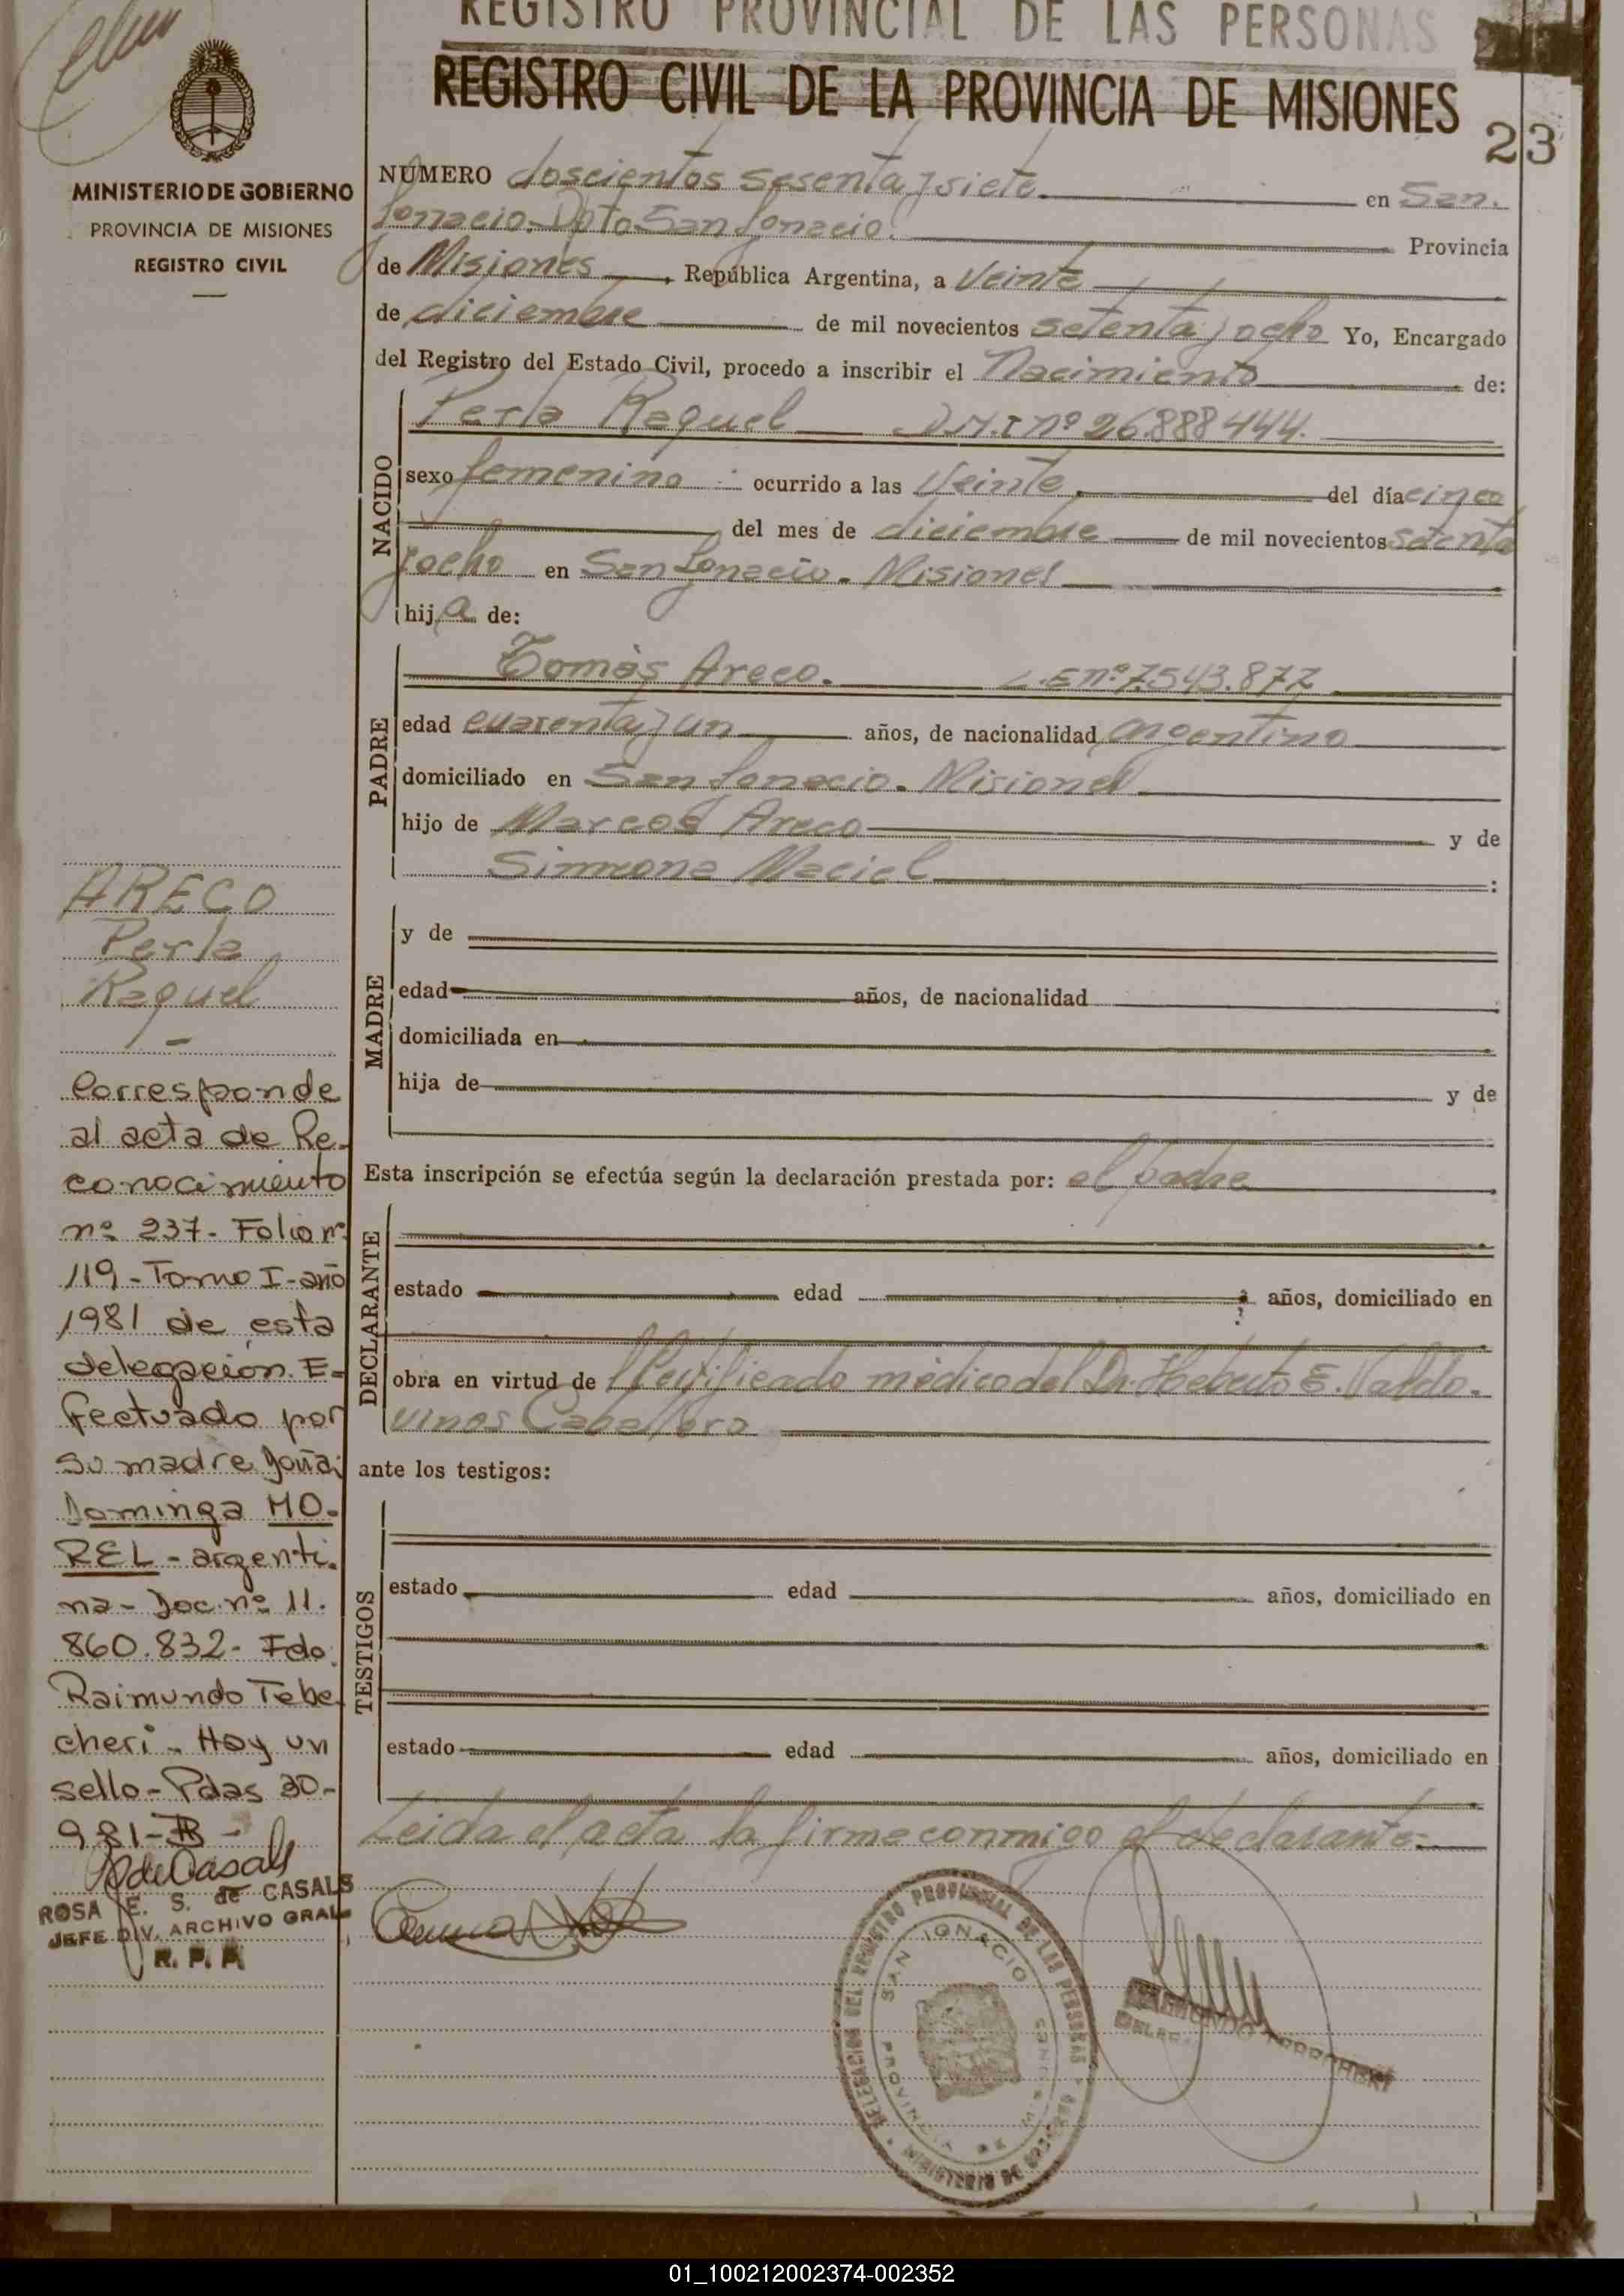 REGISTRO PROVINCIAL DE LAS PERSONAS
REGISTRO CIVIL DE LA PROVINCIA DE MISIONES
23
MINISTERIO DE GOBIERNO
PROVINCIA DE MISIONES
REGISTRO CIVIL
NUMERO doscientos sesenta y siete en San
Ignacio. Dpto San Ignacio. Provincia
de Misiones, República Argentina, a Veinte
de diciembre de mil novecientos setenta y ocho Yo, Encargado
del Registro del Estado Civil, procedo a inscribir el Nacimiento de:
NACIDO
Perla Raquel D.N.I nº 26.888.444.
sexo femenino ocurrido a las Veinte del día cinco
del mes de diciembre de mil novecientos setenta
y ocho en San Ignacio - Misiones
hija de:
PADRE
Tomás Areco. L.E nº 7.543.877
edad cuarenta y un años, de nacionalidad argentino
domiciliado en San Ignacio - Misiones
hijo de Marcos Areco y de
Simeona Maciel :
MADRE
y de
edad años, de nacionalidad
domiciliada en
hija de y de
Esta inscripción se efectúa según la declaración prestada por: el padre
DECLARANTE
estado edad años, domiciliado en
obra en virtud de Certificado médico del Dr. Heberto E. Valdo-
vinos Caballero
ante los testigos:
TESTIGOS
estado edad años, domiciliado en
estado edad años, domiciliado en
Leida el acta la firma conmigo el declarante.-
ARECO
Perla
Raquel
Corresponde
al acta de Re-
conocimiento
nº 237- Folio nº
119 - Tomo I - año
1981 de esta
delegación. E-
fectuado por
su madre doña
Dominga MO-
REL - argenti-
na - Doc. nº 11.
860.832 - Fdo.
Raimundo Tebe
cheri - Hay un
sello - Pdas 30-
981-B-
RdeCasals
ROSA E. S. de CASALS
JEFE DIV. ARCHIVO GRAL
R. P. P.
DELEGACION DEL REGISTRO PROVINCIAL DE LAS PERSONAS
SAN IGNACIO
PROVINCIA DE MISIONES
MINISTERIO DE GOBIERNO
RAIMUNDO
01_100212002374-002352